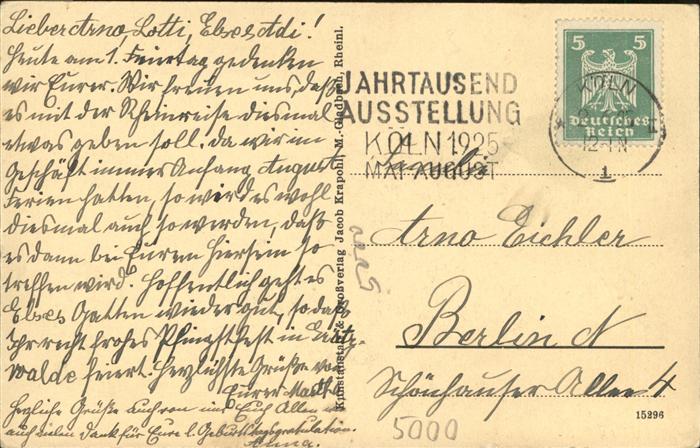 Lieber Arno, Lotti, Elses Adi!
Heute am 1. Feiertag gedenken
wir Eurer. Wir freuen uns, daß
es mit der Rheinreise diesmal
etwas geben soll. Da wir im
Geschäft immer Anfang August
Ferien hatten, so wird es wohl
diesmal auch so werden, daß
es dann bei Euren Hiersein so
treffen wird. Hoffentlich geht es
Elses Gatten wieder gut, so daß
Ihr recht frohes Pfingstfest in
walde feiert. Herzlichste Grüße von
Eurer
Herzliche Grüße auch von mir Euch Allen u.
auch vielen Dank für Eure l. Geburtstagsgratulation.
Anna.
Kunstanstalt & Großverlag Jacob Krapohl, M.-Gladbach, Rheinl.
JAHRTAUSEND
AUSSTELLUNG
KÖLN 1925
MAI AUGUST
5 5
Deutsches
Reich
KÖLN
1
12-1N
Familie
Arno Eichler
Berlin N
Schönhauser Allee 4
15296
5000